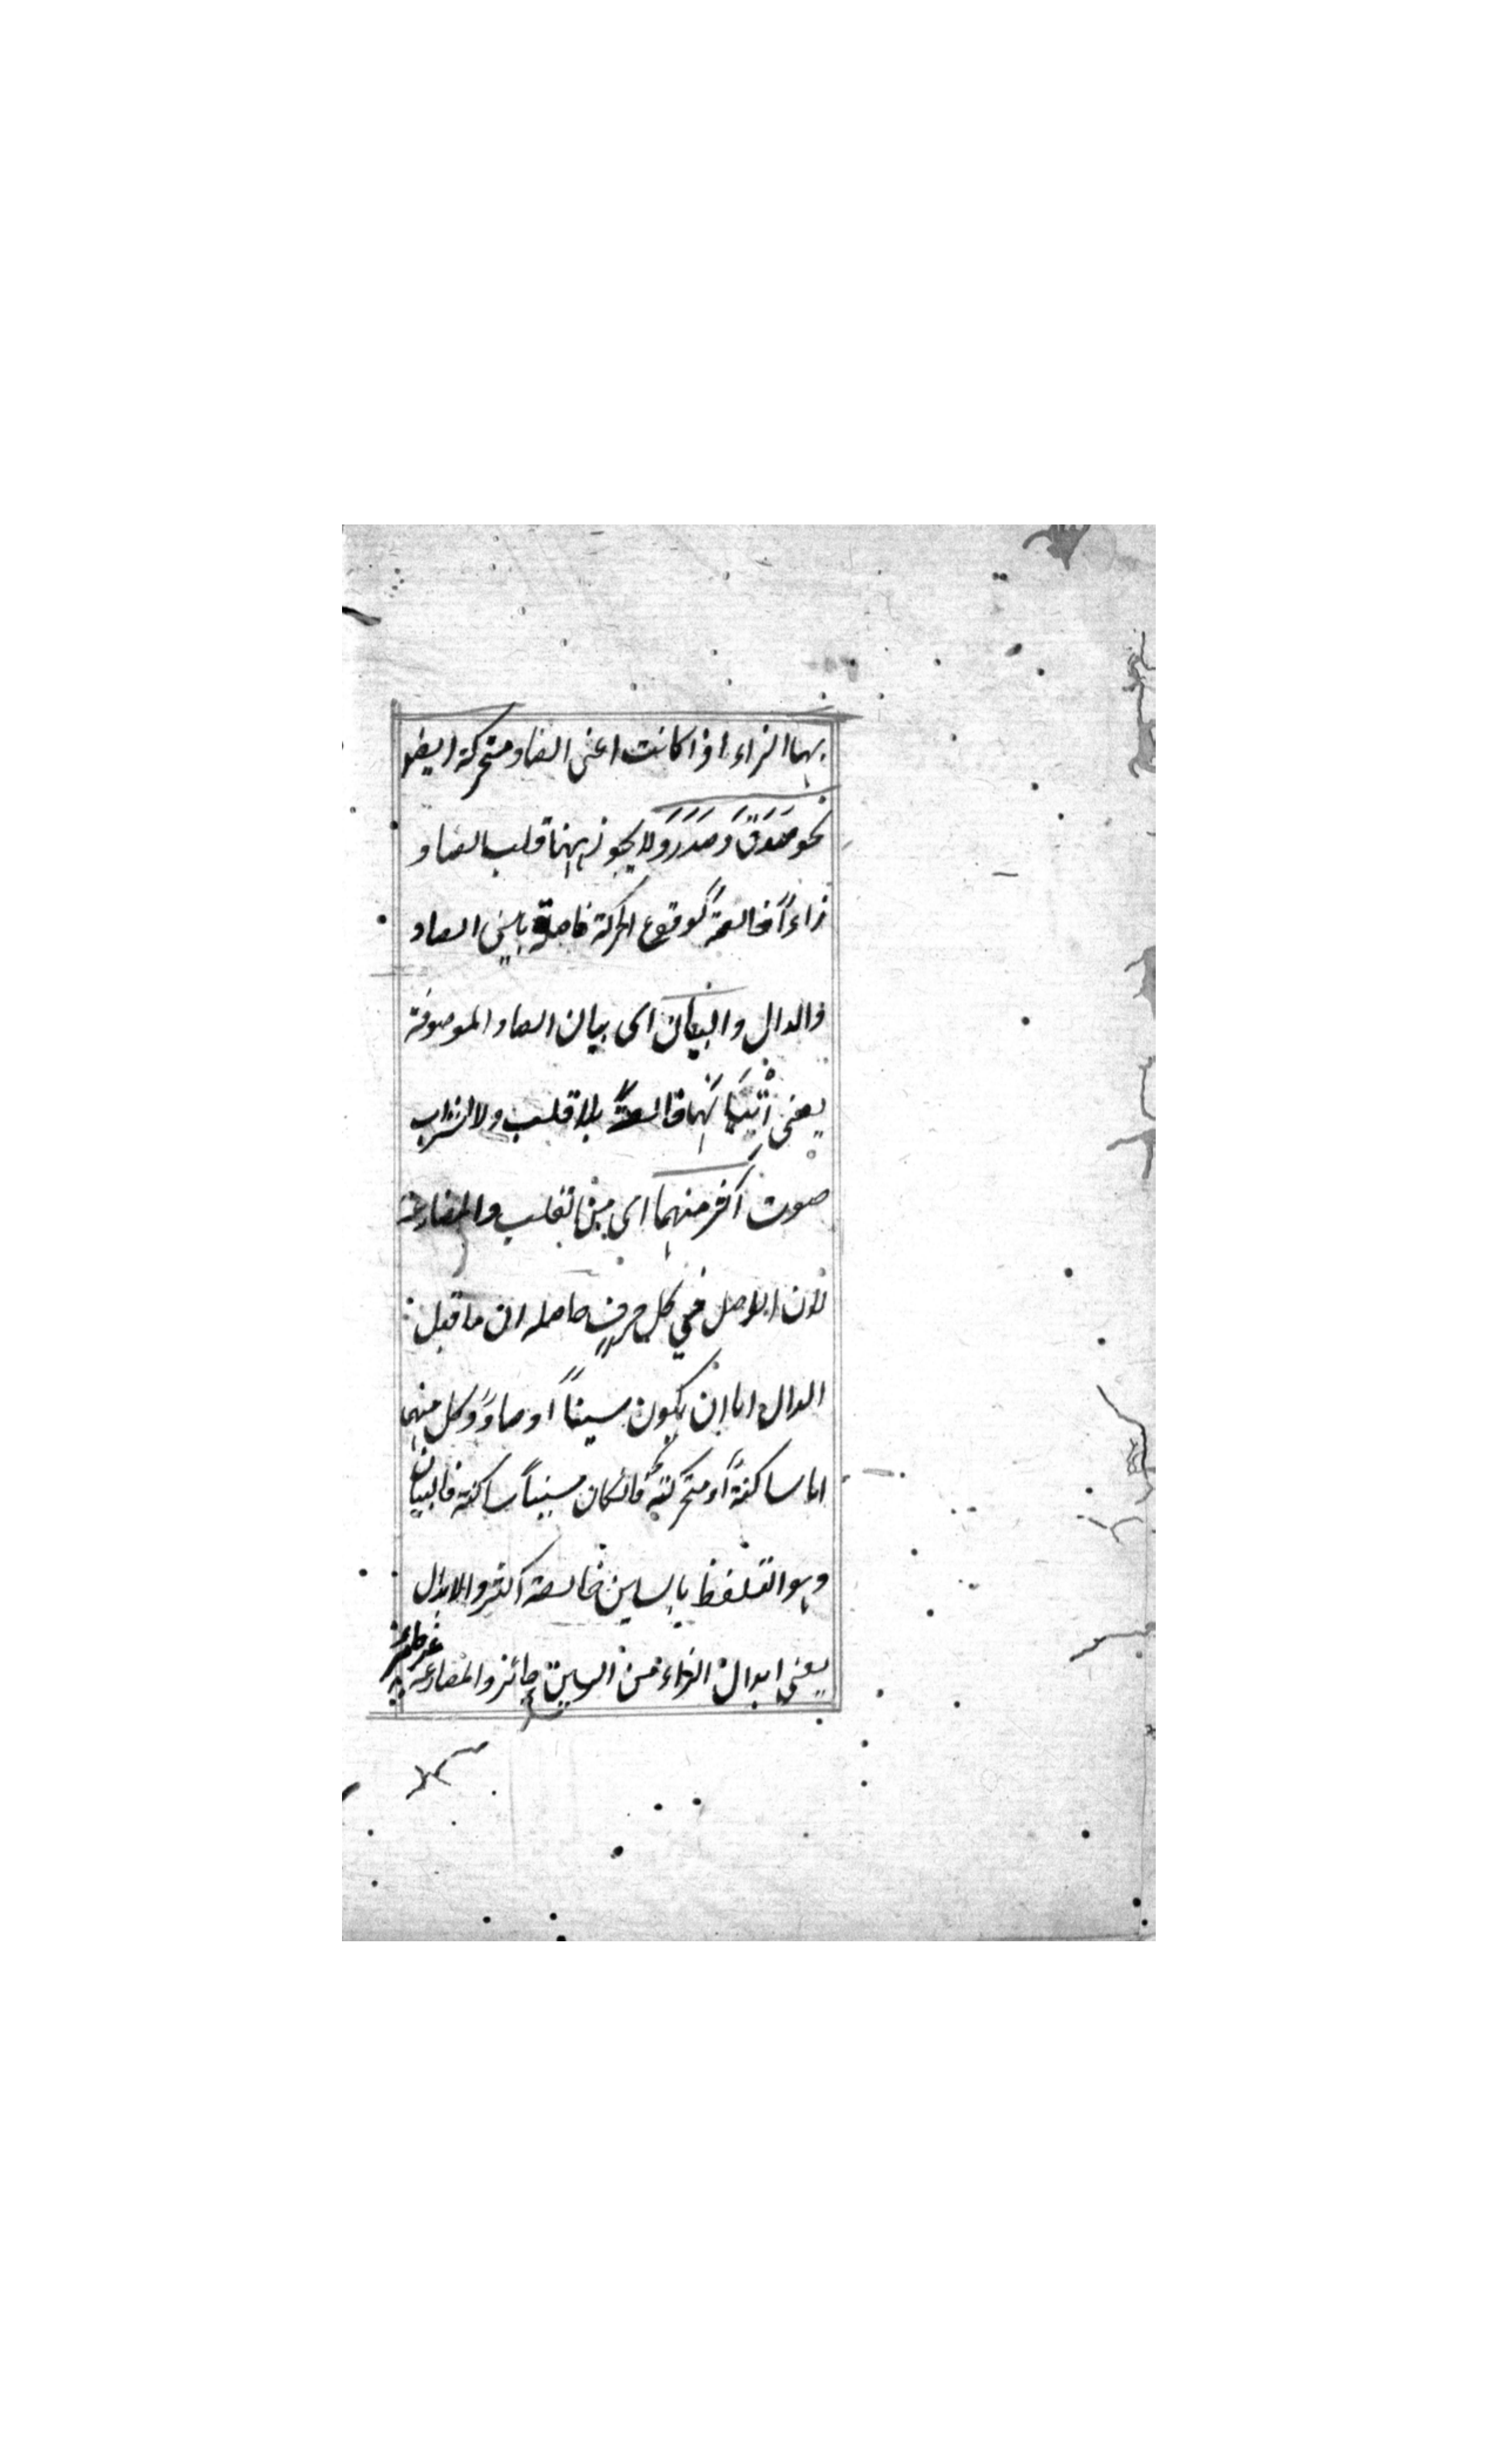 بها الزاء اذا كانت اعنى الصاد متحركة ايضا
نحو صَدَقَ وَصَدَرَ ولا يجوز ههنا قلب الصاد
زاءً خالصةً لوقوع الحركة فاصلة بين الصاد
والدال والبيان اى بيان الصاد الموصوفة
يعنى اثباتها خالصةً بلا قلب ولا اشراب
صوت اكثر منهما اى من القلب والمضارعة
لان الاصل فى كل حرف حاصله ان ما قبل
الدال اما ان يكون سيناً او صاداً وكل منهما
اما ساكنةً او متحركة فان كان سيناً ساكنة فالبيان
وهو التلفظ بالسين خالصة اكثر والابدال
يعنى ابدال الزاء من السين جائز والمضارعة غير جائز